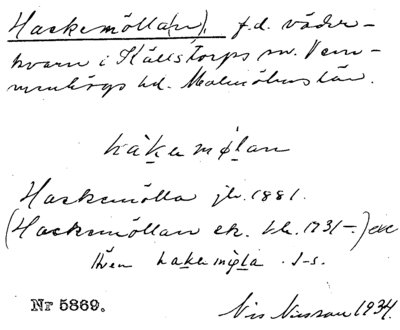 Hackemölla(n), f.d. väder-
kvarn i Källstorps sn. Vem-
menhögs hd. Malmöhus län.
håkemǿlan
Hackemölla jb. 1881.
(Hackemöllan ek. bl. 1731-)
Även hakemǿla. I-s.
Nr 5869.
Nils Nilsson 1934.